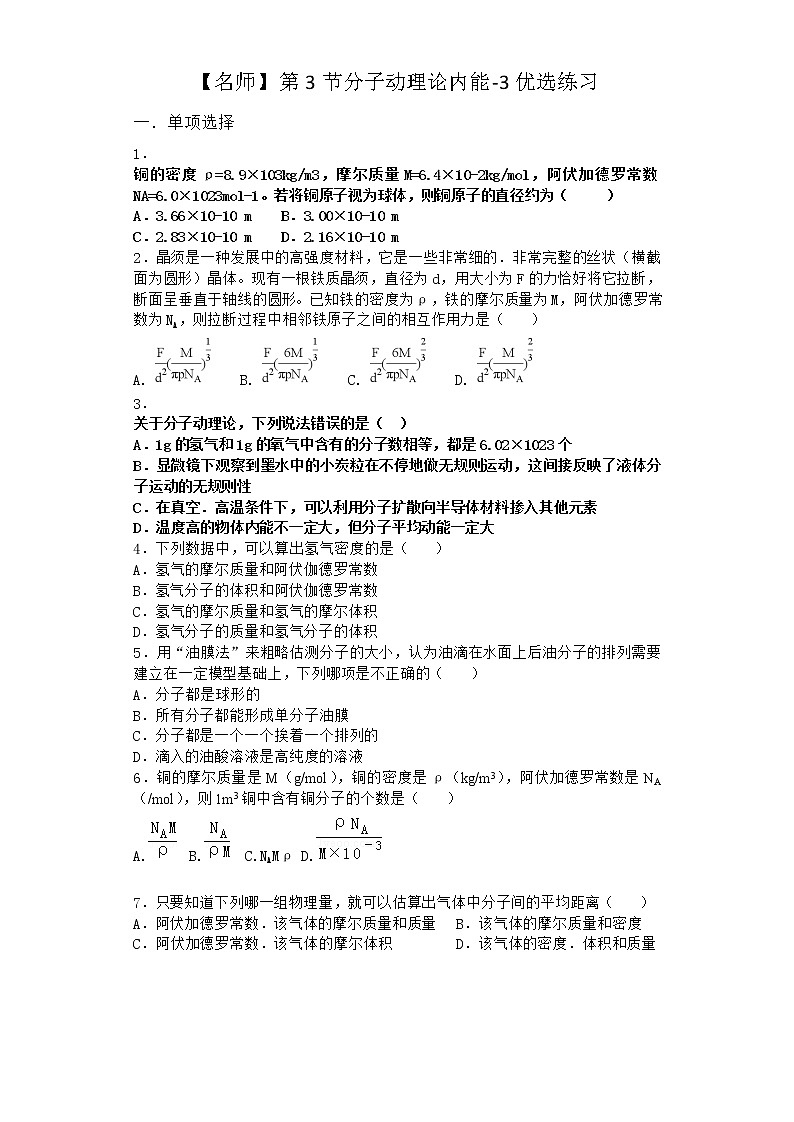 【名师】第3节分子动理论内能-3优选练习
一．单项选择
1．
铜的密度ρ=8.9×103kg/m3，摩尔质量M=6.4×10-2kg/mol，阿伏加德罗常数
NA=6.0×1023mol-1。若将铜原子视为球体，则铜原子的直径约为（　　）
A．3.66×10-10 m　　B．3.00×10-10 m
C．2.83×10-10 m　　D．2.16×10-10 m
2．晶须是一种发展中的高强度材料，它是一些非常细的．非常完整的丝状（横截
面为圆形）晶体。现有一根铁质晶须，直径为d，用大小为F的力恰好将它拉断，
断面呈垂直于轴线的圆形。已知铁的密度为ρ，铁的摩尔质量为M，阿伏加德罗常
数为N_A，则拉断过程中相邻铁原子之间的相互作用力是（　　）
A. F/d²(M/πpN_A)^(1/3)　B. F/d²(6M/πpN_A)^(1/3)　C. F/d²(6M/πpN_A)^(2/3)　D. F/d²(M/πpN_A)^(2/3)
3．
关于分子动理论，下列说法错误的是（　）
A．1g的氢气和1g的氧气中含有的分子数相等，都是6.02×1023个
B．显微镜下观察到墨水中的小炭粒在不停地做无规则运动，这间接反映了液体分
子运动的无规则性
C．在真空．高温条件下，可以利用分子扩散向半导体材料掺入其他元素
D．温度高的物体内能不一定大，但分子平均动能一定大
4．下列数据中，可以算出氢气密度的是（　　）
A．氢气的摩尔质量和阿伏伽德罗常数
B．氢气分子的体积和阿伏伽德罗常数
C．氢气的摩尔质量和氢气的摩尔体积
D．氢气分子的质量和氢气分子的体积
5．用“油膜法”来粗略估测分子的大小，认为油滴在水面上后油分子的排列需要
建立在一定模型基础上，下列哪项是不正确的（　　）
A．分子都是球形的
B．所有分子都能形成单分子油膜
C．分子都是一个一个挨着一个排列的
D．滴入的油酸溶液是高纯度的溶液
6．铜的摩尔质量是M（g/mol），铜的密度是ρ（kg/m³），阿伏加德罗常数是N_A
（/mol），则1m³铜中含有铜分子的个数是（　　）
A. N_AM/ρ　B. N_A/ρM　C.N_AMρ　D. ρN_A/M×10⁻³
7．只要知道下列哪一组物理量，就可以估算出气体中分子间的平均距离（　　）
A．阿伏加德罗常数．该气体的摩尔质量和质量　B．该气体的摩尔质量和密度
C．阿伏加德罗常数．该气体的摩尔体积　D．该气体的密度．体积和质量